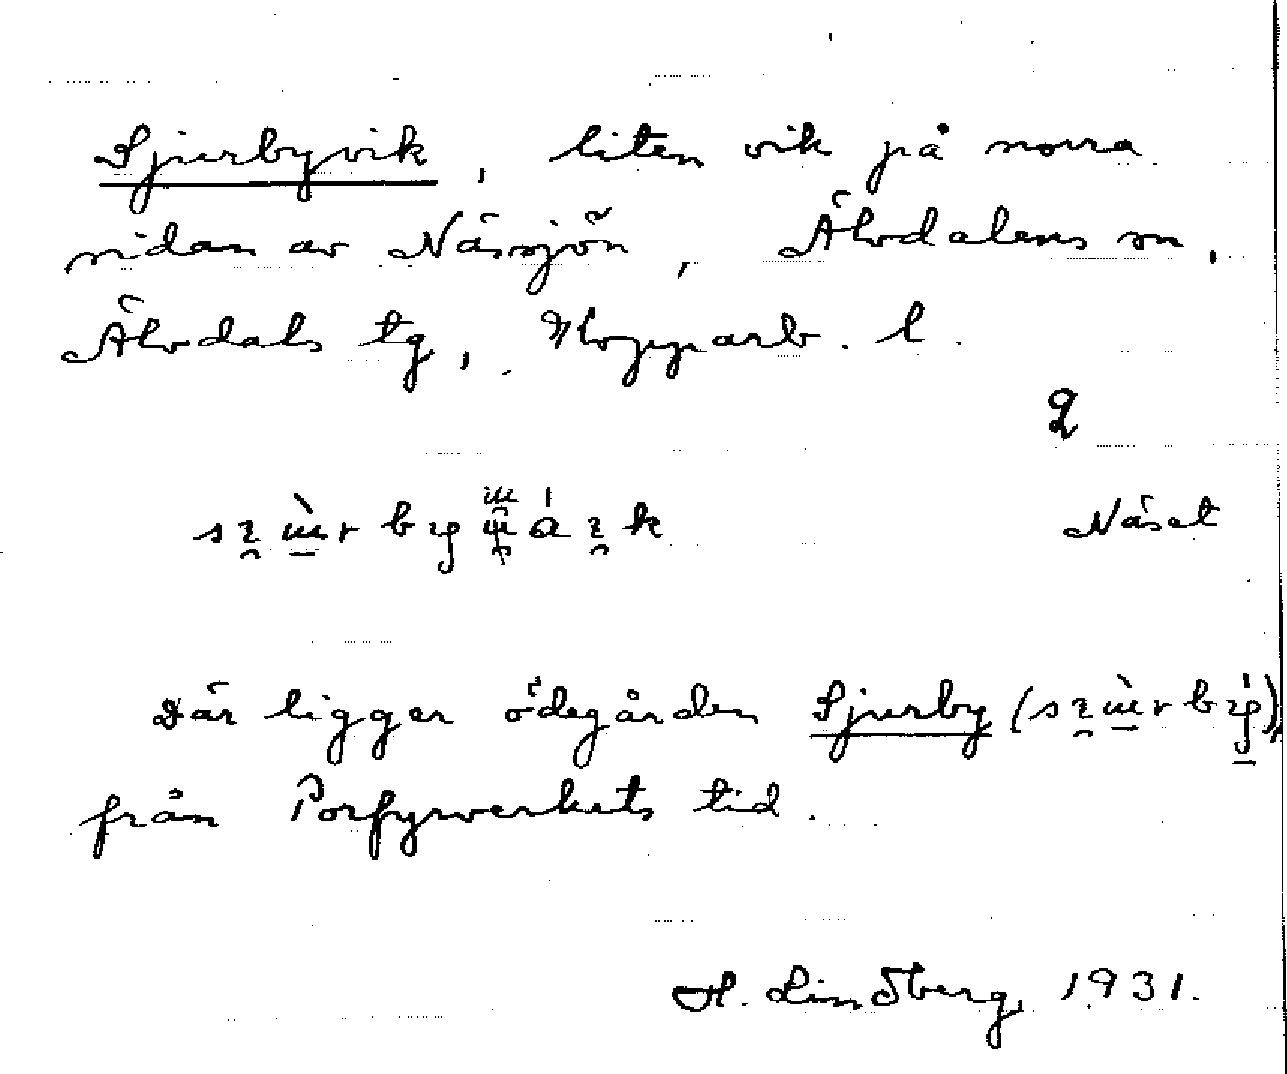 Sjurbyvik, liten vik på norra
sidan av Nässjön, Älvdalens sn,
Älvdals tg, Kopparb. l.
Näset
Där ligger ödegården Sjurby
från Porfyrverkets tid.
H. Lindberg 1931.